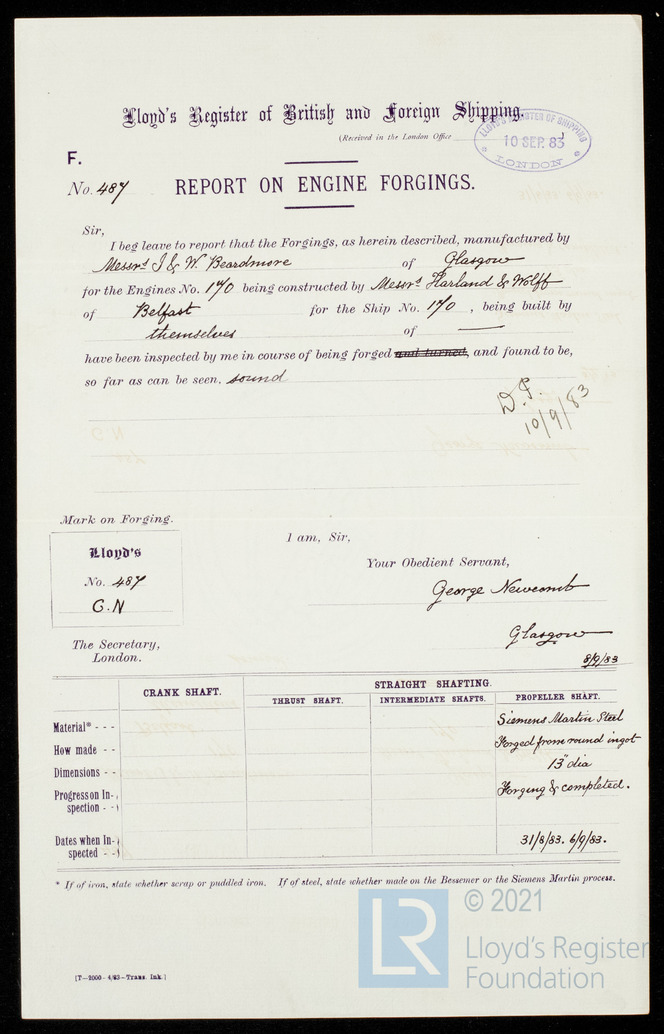 Lloyd's Register of British and Foreign Shipping.
(Received in the London Office
LLOYD'S REGISTER OF SHIPPING
10 SEP. 83
LONDON
F.
No. 487
REPORT ON ENGINE FORGINGS.
Sir,
I beg leave to report that the Forgings, as herein described, manufactured by
Messrs J & W. Beardmore of Glasgow
for the Engines No. 170 being constructed by Messrs Harland & Wolff
of Belfast for the Ship No. 170, being built by
themselves of —
have been inspected by me in course of being forged and turned, and found to be,
so far as can be seen, sound
10/9/83
Mark on Forging.
I am, Sir,
Lloyd's
Your Obedient Servant,
No. 487
George Newcomb
G.N
Glasgow
The Secretary,
London.
8/9/83
CRANK SHAFT.
STRAIGHT SHAFTING.
THRUST SHAFT.
INTERMEDIATE SHAFTS.
PROPELLER SHAFT.
Material* - - - Siemens Martin Steel
How made - - Forged from round ingot
Dimensions - - 13" dia
Progress on In-
spection - - Forging & completed.
Dates when In-
spected - - 31/8/83. 6/9/83.
* If of iron, state whether scrap or puddled iron. If of steel, state whether made on the Bessemer or the Siemens Martin process.
LR
© 2021
Lloyd's Register
Foundation
[T—2000—4/83—Trans. Ink.]